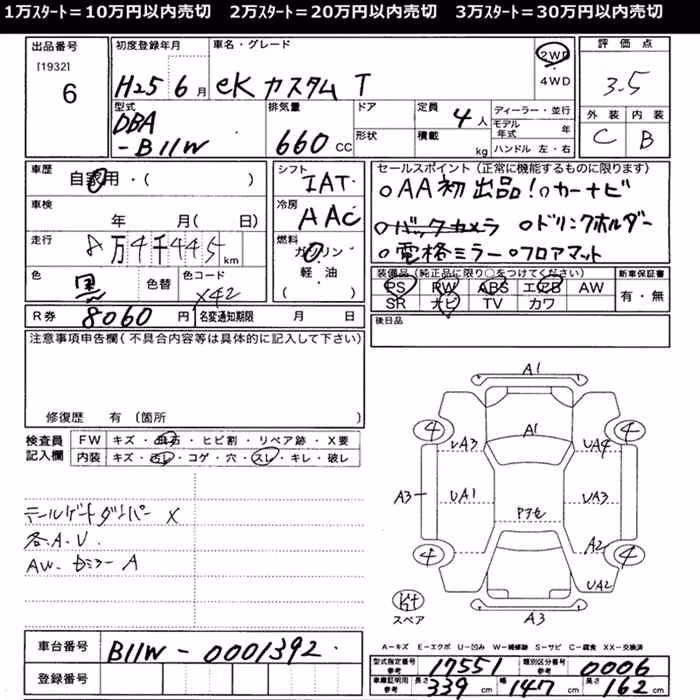 1万ｽﾀｰﾄ＝10万円以内売切　2万ｽﾀｰﾄ＝20万円以内売切　3万ｽﾀｰﾄ＝30万円以内売切
出品番号
[1932]
6
初度登録年月
H25 6月
車名・グレード
eK カスタム T
2WD
4WD
評価点
3.5
外装 内装
C B
型式
DBA
-B11W
排気量
660 CC
ドア
形状
定員 4人
積載 kg
ディーラー・並行
モデル年式 年
ハンドル 左・右
車歴
自家用・( )
車検
年 月( 日)
走行
8万4千445km
色 黒 色替
色コード X42
シフト
IAT
冷房
AAC
燃料
ガソリン
軽油
( )
セールスポイント（正常に機能するものに限ります）
○AA初出品！○カーナビ
○バックカメラ ○ドリンクホルダー
○電格ミラー ○フロアマット
装備品（純正品に限り○をつけてください）
PS PW ABS エアB AW
SR ナビ TV カワ
新車保証書
有・無
R券 8060円
名変通知期限 月 日
後日品
注意事項申告欄（不具合内容等は具体的に記入して下さい）
修復歴 有（箇所 ）
検査員
記入欄
FW キズ・飛石・ヒビ割・リペア跡・X要
内装 キズ・汚レ・コゲ・穴・スレ・キレ・破レ
テールゲートダンパー X
各A.U.
A1
A1
4 4
UA3 UA4
A3 UA1 UA3
Pアセ
A2
4 4
UA2
A3
スペア
A－キズ E－エクボ U－凹み W－補修跡 S－サビ C－腐食 XX－交換済
車台番号 B11W-0001392.
登録番号
型式指定番号 参考 17551
類別区分番号 参考 0006
車庫証明用 参考 長さ 339 幅 147 高さ 162 cm